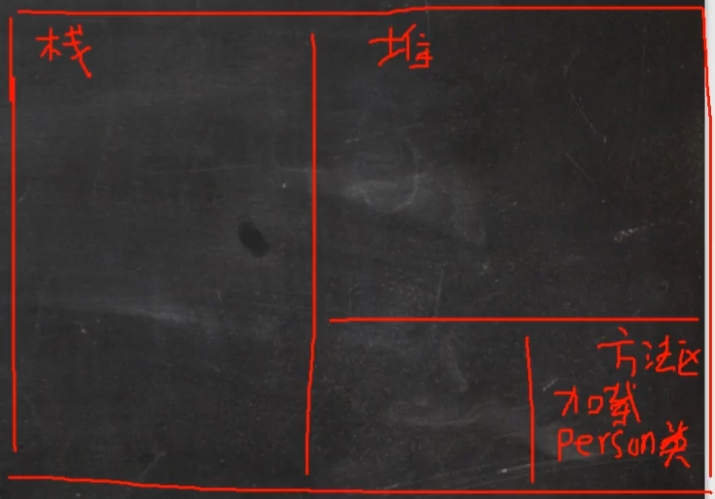 栈
堆
方法区
加载
Person类